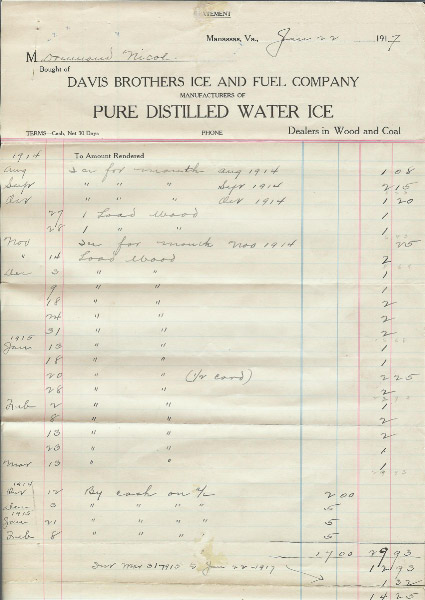 STATEMENT
Manassas, Va., Jan 22 1917
M Nicol
Bought of
DAVIS BROTHERS ICE AND FUEL COMPANY
MANUFACTURERS OF
PURE DISTILLED WATER ICE
TERMS—Cash, Net 30 Days PHONE Dealers in Wood and Coal
1914 To Amount Rendered
Aug Ice for month Aug 1914 1 08
Sept " " " Sept 1914 2 15
Oct " " " Oct 1914 1 20
27 1 Load wood 1
28 1 " " 1
Nov Ice for month Nov 1914 25
" 14 Load wood 2
Dec 3 " " 1
9 " " 1
18 " " 2
24 " " 2
31 " " 2
1915
Jan 13 " " 1
18 " " 1
20 " " (1/2 cord) 2 25
28 " " 2
Feb 2 " " 1
8 " " 2
13 " " 2
23 " " 1
Mar 13 " " 1
1914
Oct 12 By cash on a/c 2 00
Dec 3 " " " " 5
1915
Jan 21 " " " " 5
Feb 8 " " " " 5
17 00 29 93
Int Mar 31 1915 to Jan 22-1917 12 93
1 32
14 25